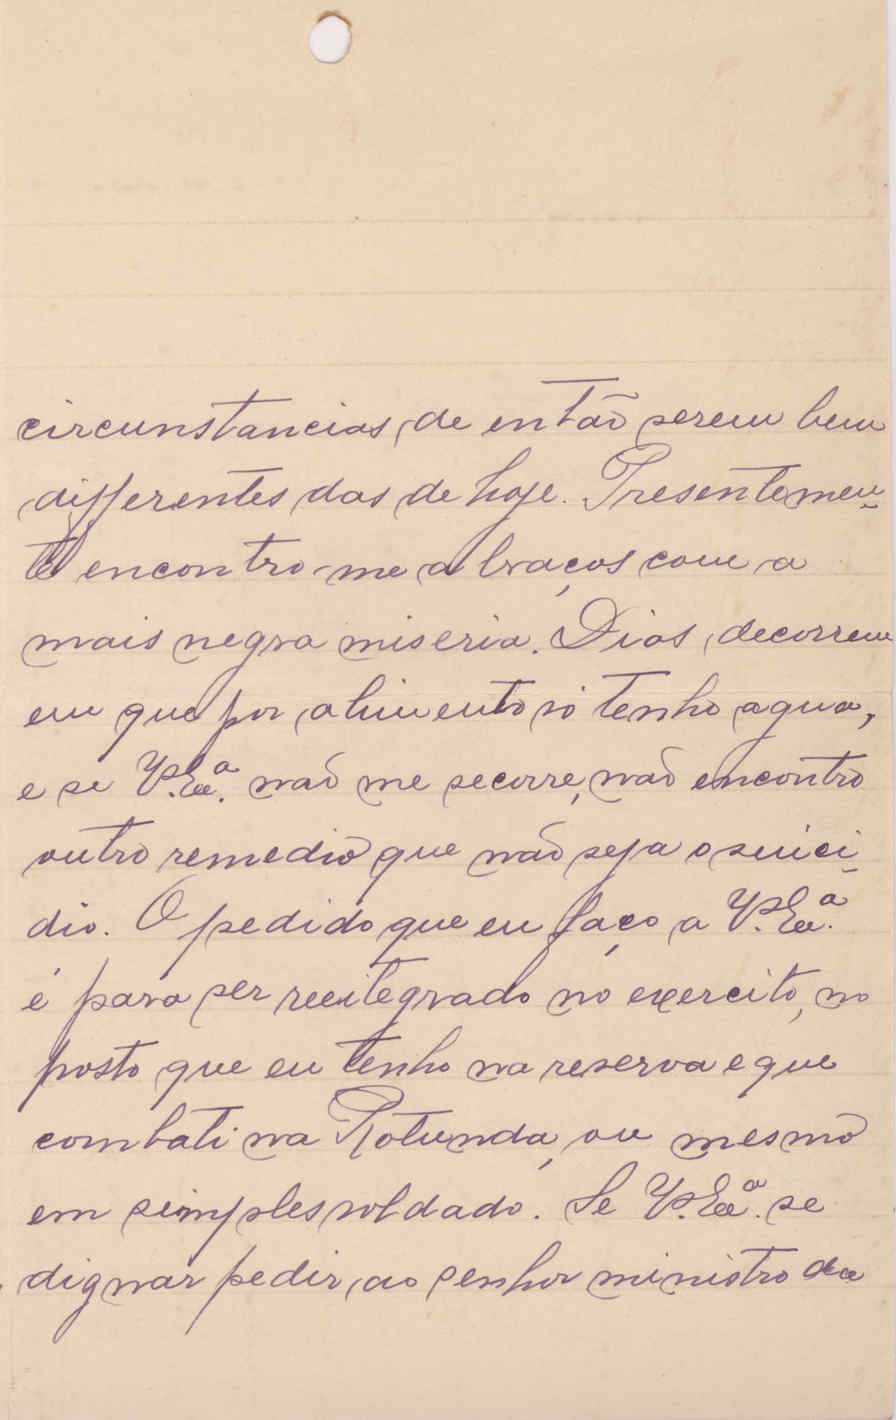 circunstancias, de então serem bem
differentes das de hoje. Presentemen-
te encontro-me a braços com a
mais negra miseria. Dias, decorrem
em que por alimento só tenho agua,
e se V. Exª. não me secorre, não encontro
outro remedio que não seja o suici-
dio. O pedido que eu faço a V. Exª.
é para ser reeitegrado no exercito, no
posto que eu tenho na reserva e que
combati na Rotunda, ou mesmo
em seimples soldado. Se V. Exª. se
dignar pedir, ao senhor ministro da